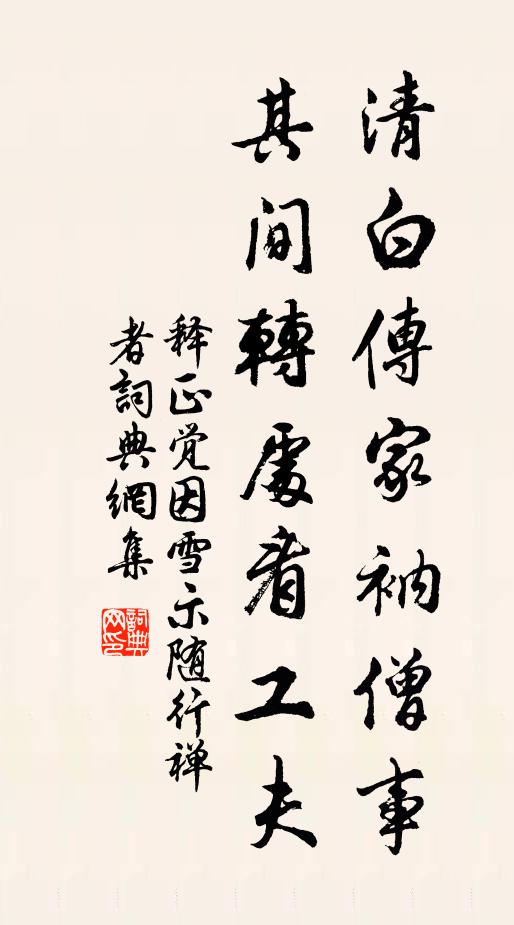 清白傳家衲僧事
其間轉處看工夫
释正觉因雪示随行禅
者詞典網集
詞典
网印